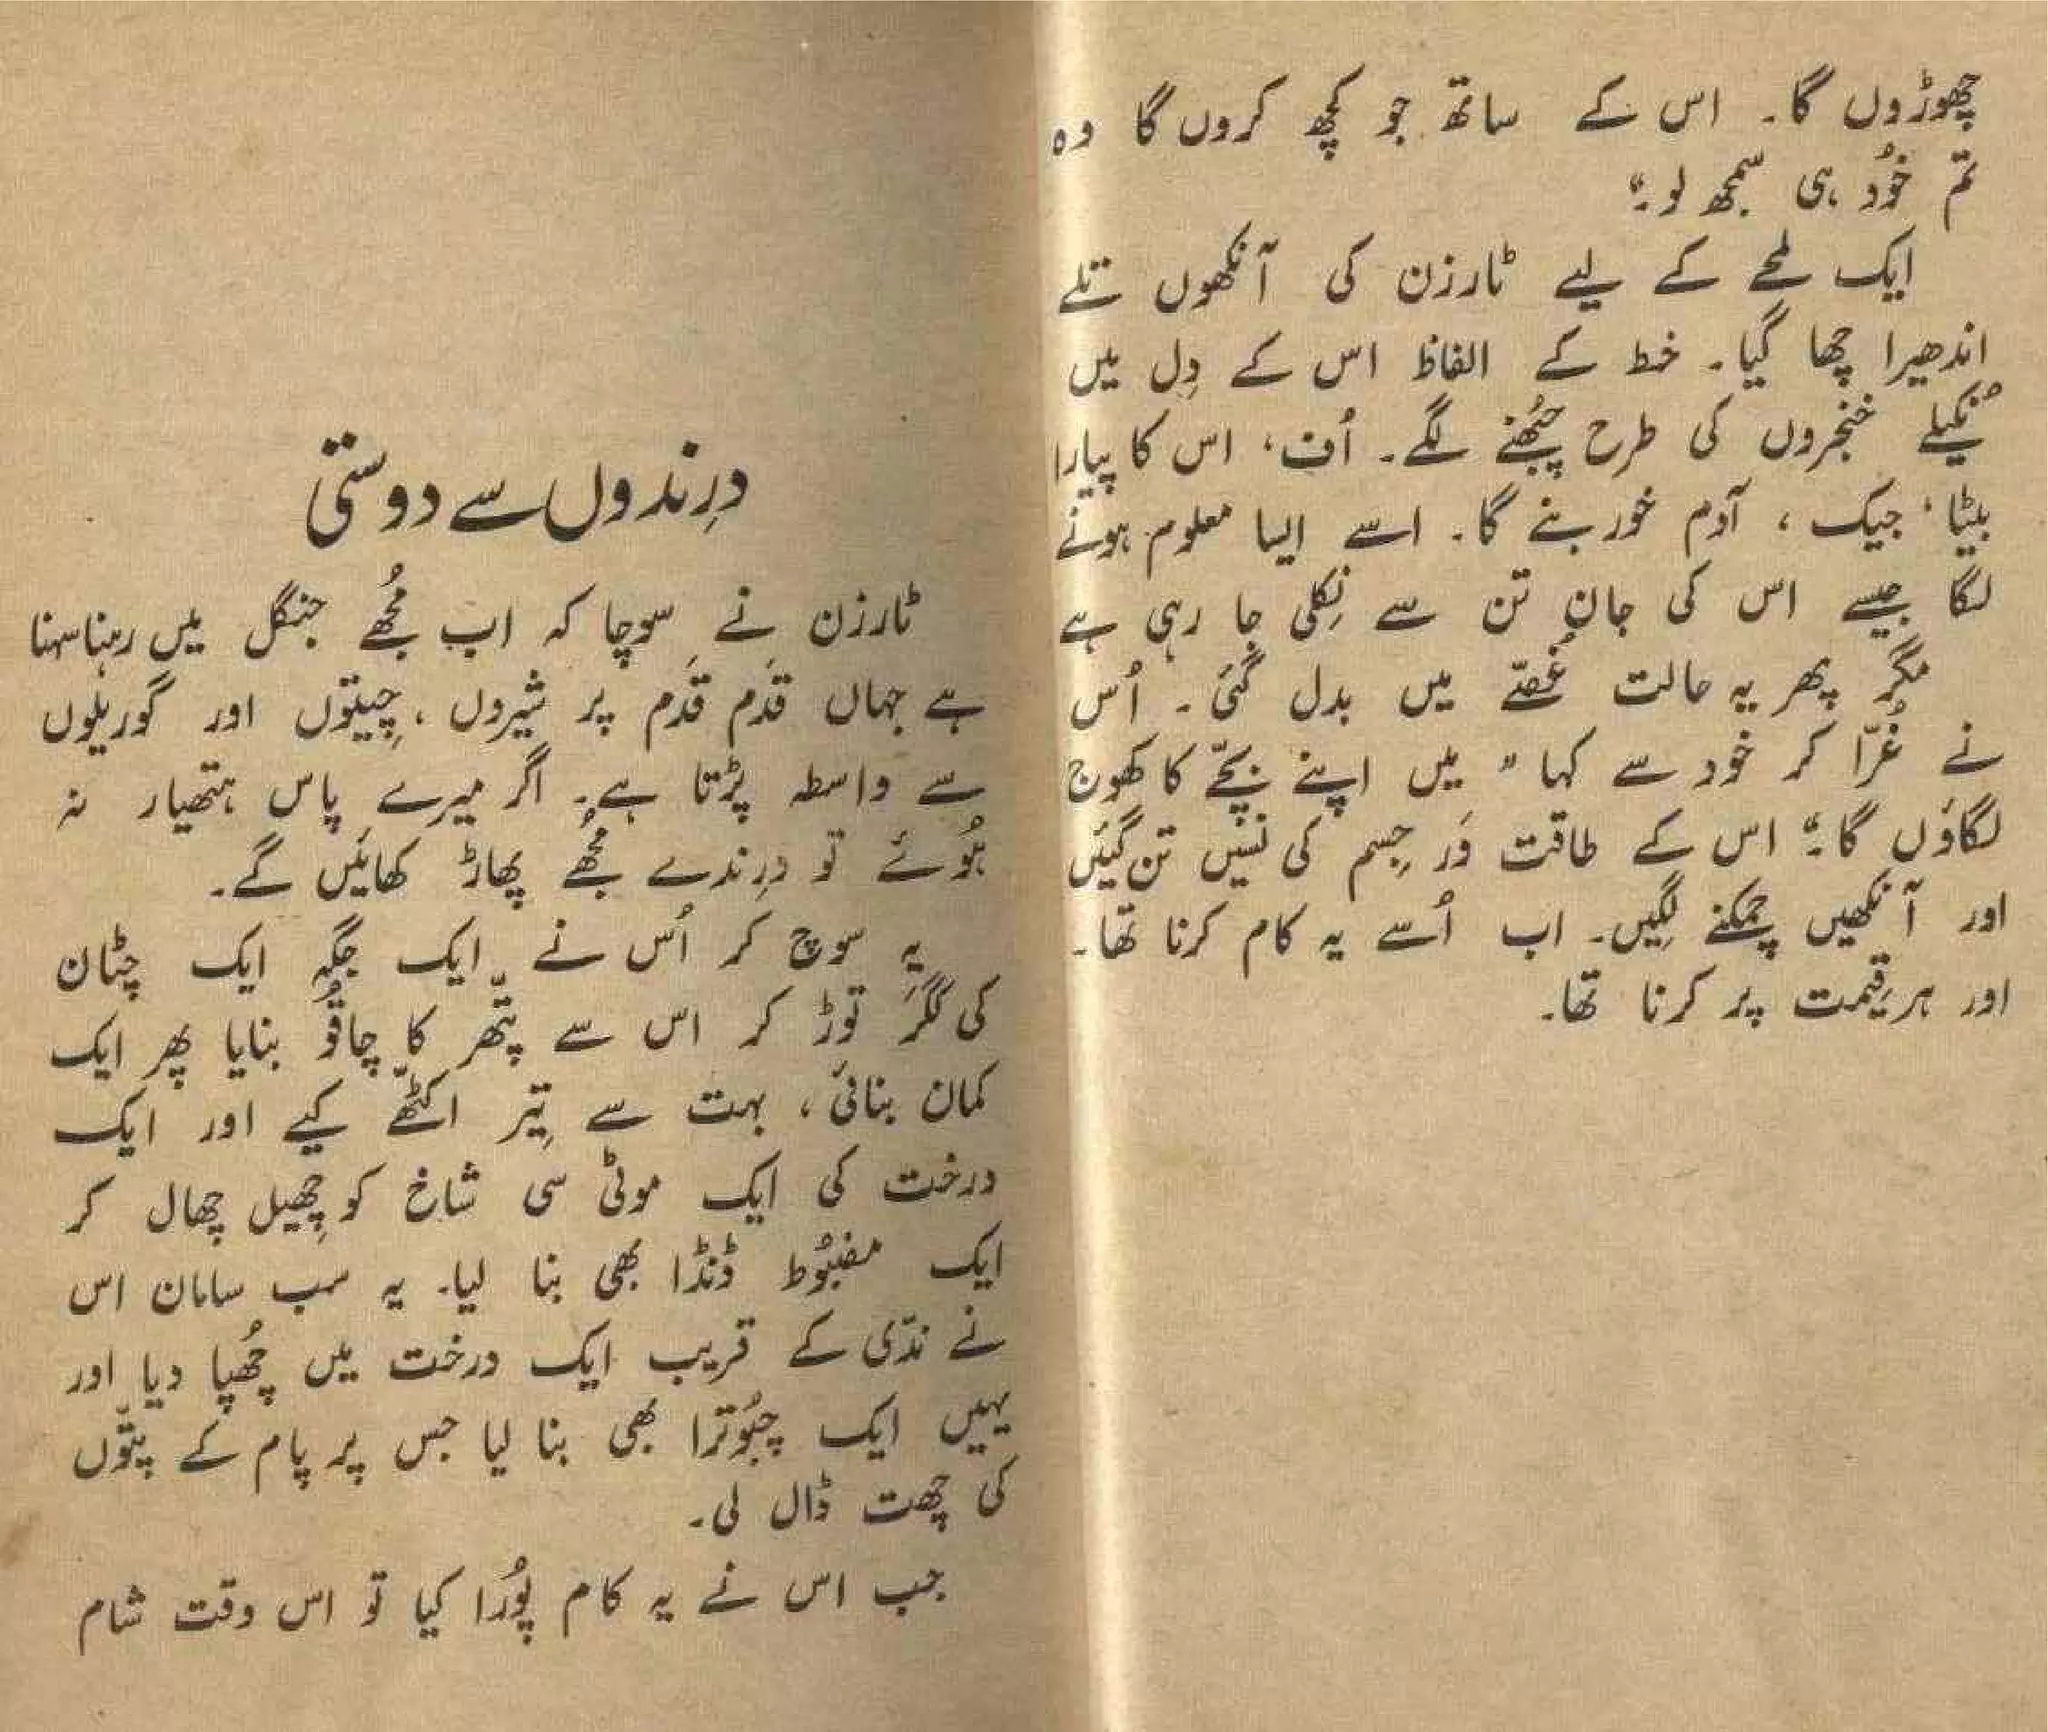 چھوڑوں گا۔ اس کے ساتھ جو کچھ کروں گا وہ
تم خُود ہی سمجھ لو۔"
ایک لمحے کے لیے ٹارزن کی آنکھوں تلے
اندھیرا چھا گیا۔ خط کے الفاظ اس کے دِل میں
نُکیلے خنجروں کی طرح چُبھنے لگے۔ اُف، اس کا پیارا
بیٹا، جیک، آدم خور بنے گا۔ اسے ایسا معلوم ہونے
لگا جیسے اس کی جان تن سے نِکلی جا رہی ہے
مگر پھر یہ حالت غُصّے میں بدل گئی۔ اُس
نے غُرّا کر خود سے کہا "میں اپنے بچّے کا کھوج
لگاؤں گا۔" اس کے طاقت وَر جِسم کی نسیں تن گئیں
اور آنکھیں چمکنے لگِیں۔ اب اُسے یہ کام کرنا تھا۔
اور ہر قیمت پر کرنا تھا۔
درِندوں سے دوستی
ٹارزن نے سوچا کہ اب مُجھے جنگل میں رہنا سہنا
ہے جہاں قدَم قدَم پر شیروں، چِیتوں اور گوریلوں
سے واسطہ پڑتا ہے۔ اگر میرے پاس ہتھیار نہ
ہُوئے تو درِندے مُجھے پھاڑ کھائیں گے۔
یہ سوچ کر اُس نے ایک جگہ ایک چٹان
کی کگَر توڑ کر اس سے پتّھر کا چاقُو بنایا پھر ایک
کمان بنائی، بہت سے تِیر اکٹّھے کیے اور ایک
درخت کی ایک موٹی سی شاخ کو چِھیل چھال کر
ایک مضبُوط ڈنڈا بھی بنا لیا۔ یہ سب سامان اس
نے ندّی کے قریب ایک درخت میں چُھپا دیا اور
یہیں ایک چبُوترا بھی بنا لیا جس پر پام کے پتّوں
کی چھت ڈال لی۔
جب اس نے یہ کام پُورا کیا تو اس وقت شام